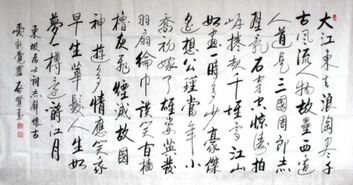 大江東去浪淘盡千
古風流人物故壘西邊
人道是三國周郎赤
壁亂石穿空驚濤拍
岸捲起千堆雪江山
如畫一時多少豪傑
遙想公瑾當年小
喬初嫁了雄姿英發
羽扇綸巾談笑間檣
櫓灰飛煙滅故國
神遊多情應笑我
早生華髮人生如
夢一樽還酹江月
東坡居士詞赤壁懷古